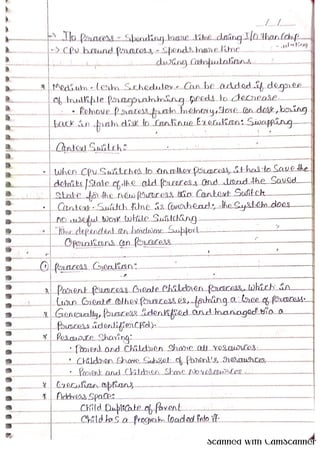 → I/O Process - Spending more time doing I/O than Comp-
utation
→ CPU bound Process - Spends more time
during computations
* Medium-term Scheduler - Can be added if degree
of multiple Programming needs to decrease
• Remove Process from memory, Store on disk, bring
back in from disk to Continue Execution: Swapping
Context Switch:
• When CPU Switches to another process, it has to Save the
details / State of the old process and load the Saved
State for the new process via Context Switch
• Context-Switch time is overhead; the System does
no useful work while Switching
• Time dependent on hardware Support
Operations on Process
① Process Creation:
* Parent Process Create Children Process, which, in
turn Create other Processes, forming a tree of Process.
* Generally, Process identified and managed via a
Process identifier (Pid).
* Resource Sharing:
• Parent and Children Share all resources
• Children Share Subset of Parent's resources
• Parent and Children Share No resources
* Execution options
* Address Space:
Child Duplicate of Parent
Child has a Program loaded into it.
Scanned with CamScanner